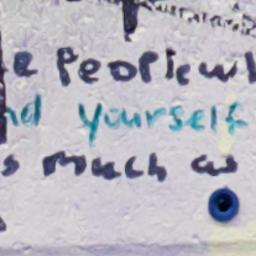 e people wh
nd yourself
s much as